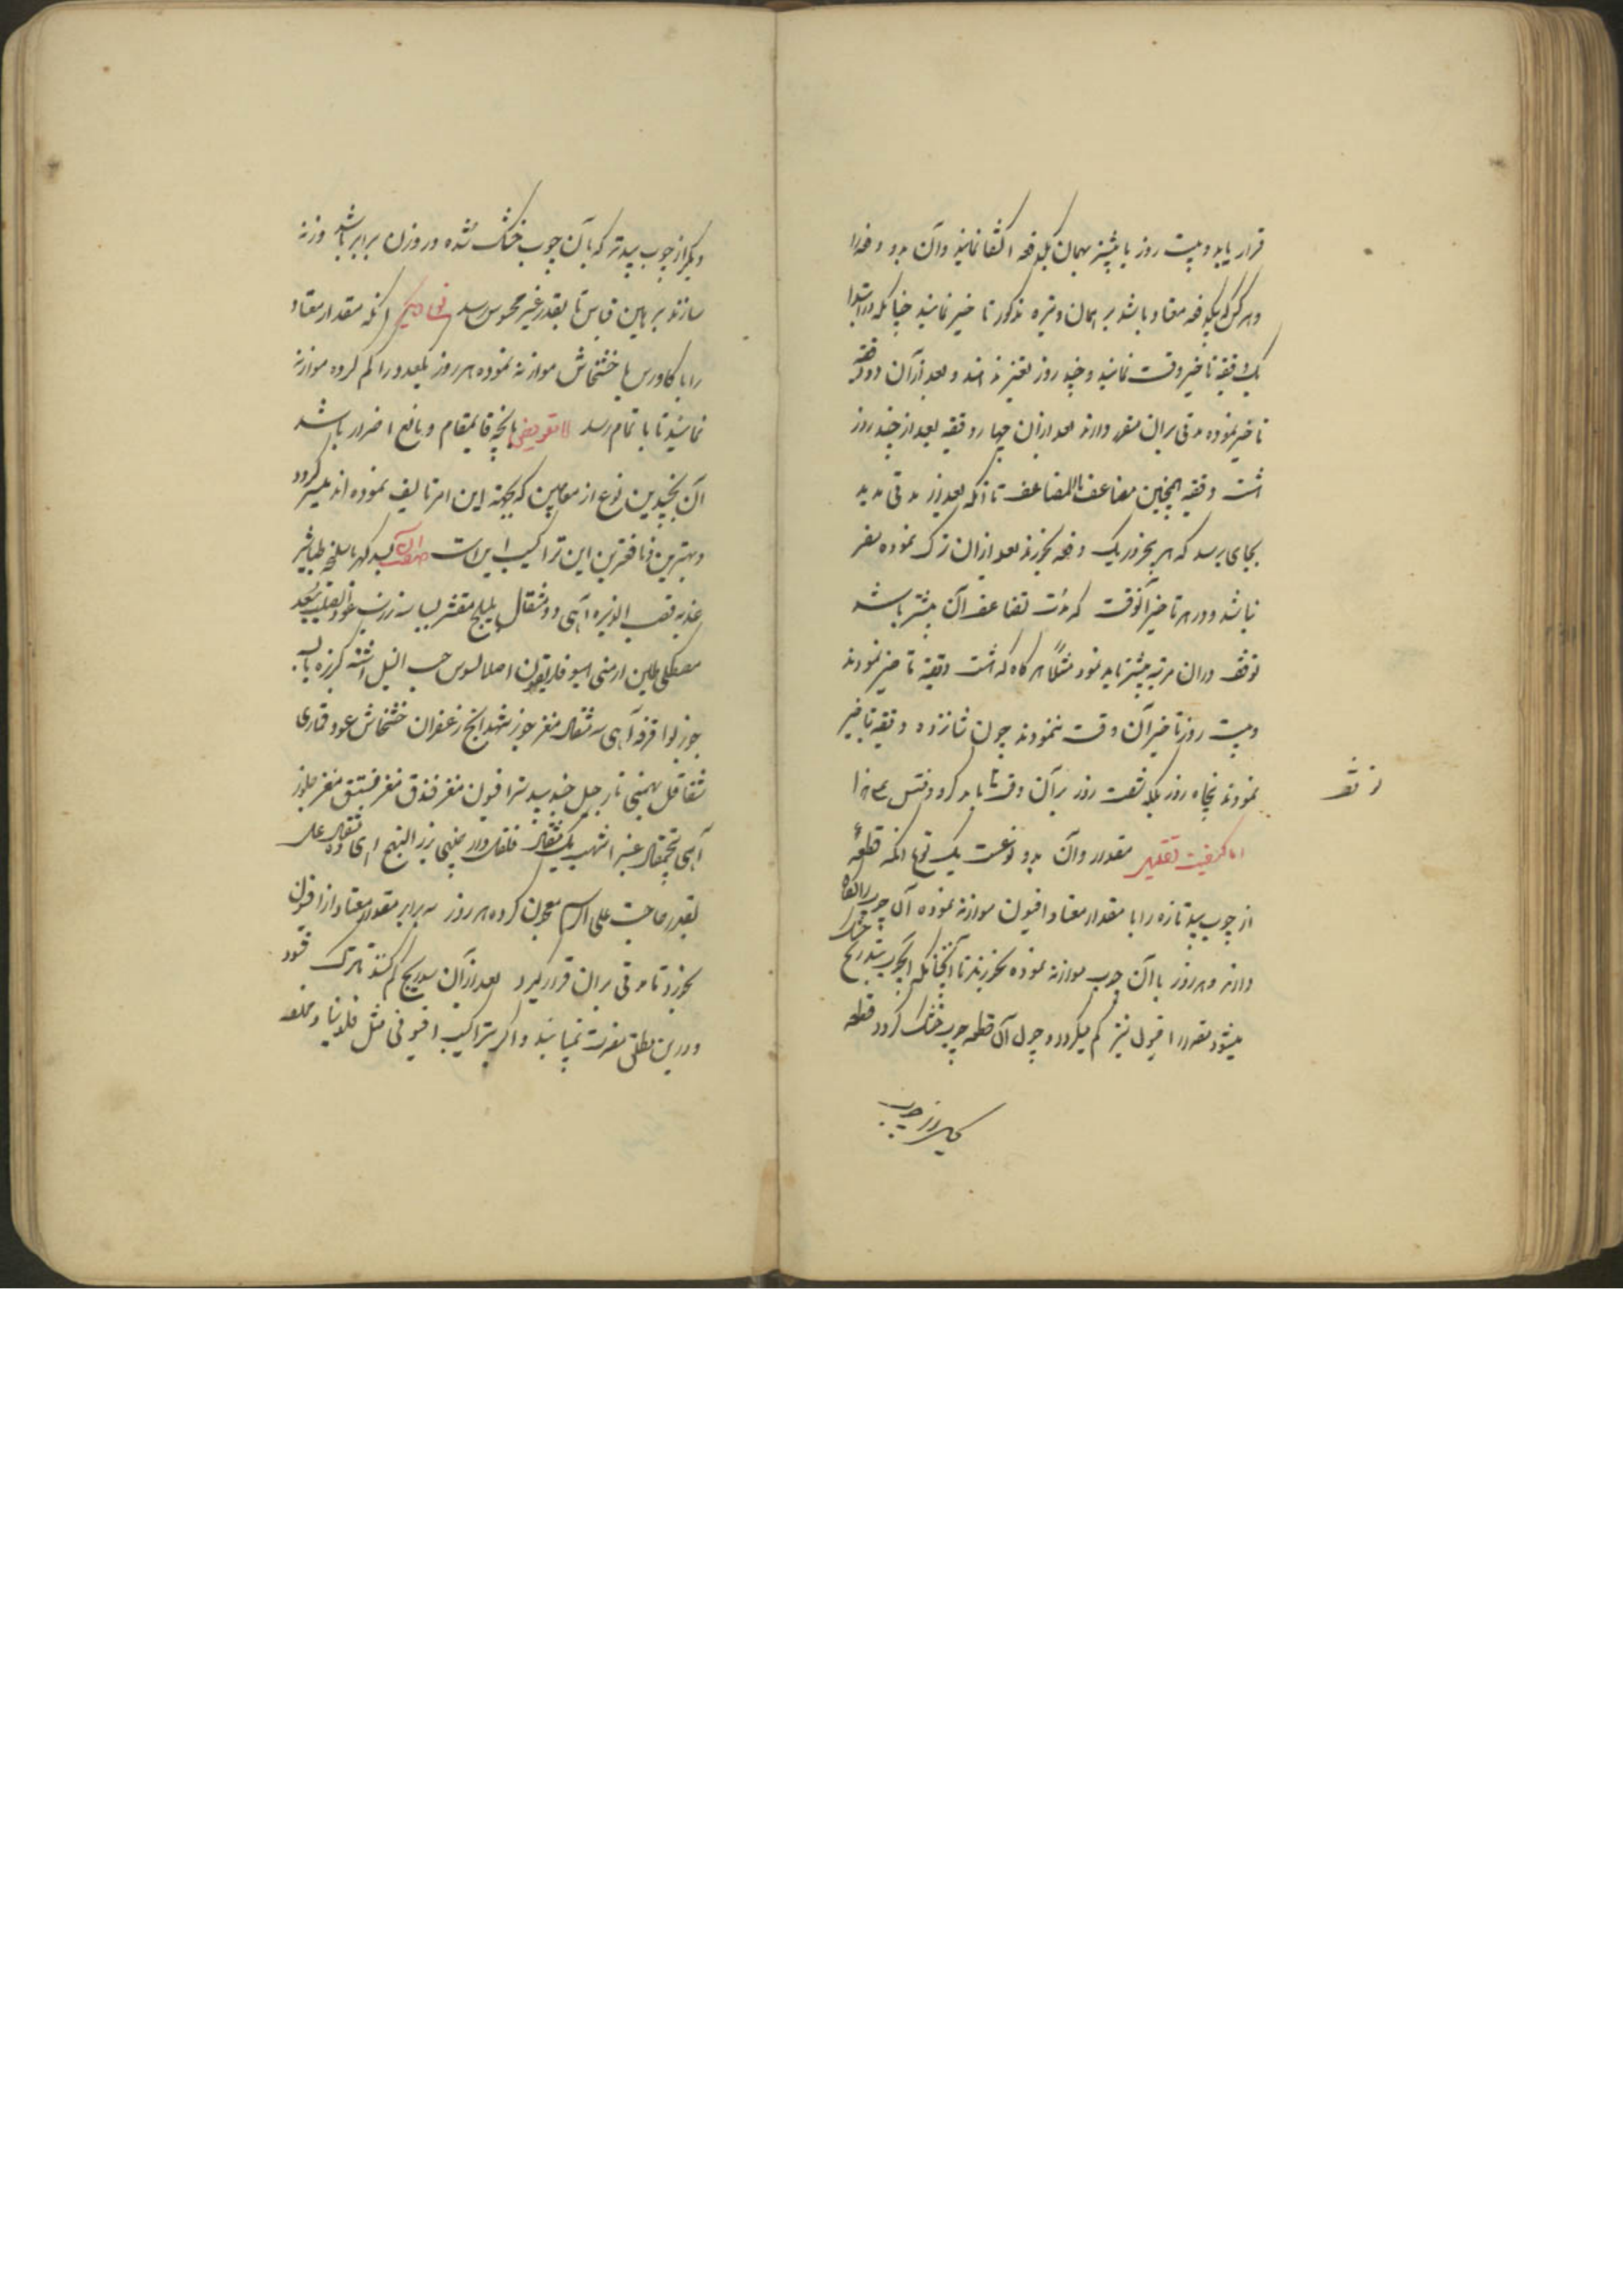 قرار یابد و بیست روز یا بیشتر بهمان یکدفعه اکتفا نمایند وآن بدو دفعه را
و هر کس که یکدفعه معتاد باشد بر همان وتیره مذکور تاخیر نمایند چنانکه در ابتدا
یک دقیقه تاخیر وقت نمایند و چند روز تغییر ندهند و بعد از آن دو دقیقه
تاخیر نموده مدتی بران مقرر دارند بعد ازان چهار دقیقه بعد از چند روز
هشت دقیقه همچنین مضاعف بالمضاعف تا آنکه بعد از مدتی مدید
بجای برسد که هر بخورد یک دفعه بخورند بعد ازان ترک نموده مضر
نباشد ودر هر تاخیر آنوقت که مدت تضاعف آن بیشتر باشد
توقف دران مرتبه بیشتر باید نمود مثلاً هرگاه که هشت دقیقه تاخیر نمودند
وبیست روز تاخیر آن وقت ننمودند چون شانزده دقیقه تاخیر
نمودند پنجاه روز بلکه شصت روز برآن وقت باید کرد وقس علی هذا
اما کیفیت تقلیل مقدار وآن بدو نوعست یک نوع آنکه قطعهٔ
از چوب بید تازه را با مقدار معتاد افیون موازنه نموده آن چوب را نگاه
دارند وهر روز با آن چوب موازنه نموده بخورند تا آنچنانکه آنچوب بتدریج خشک
میشود مقدار افیون نیز کم میگردد و چون آن قطعه چوب خشک گردد قطعه
دیگر از چوب
دیگر از چوب بید تر که با آن چوب خشک شده در وزن برابر باشد وزنه
سازند بر همین قیاس تا بقدر غیر محسوس رسد نوع دیگر آنکه مقدار معتاد
را با کاورس یا خشخاش موازنه نموده هر روز یکعدد را کم کرده موازنه
نمایند تا باتمام رسد اما تعویض بآنچه قایمقام و مانع اضرار باشد
آن بچندین نوع از معاجین که بجهة این امر تالیف نموده اند میسر گردد
و بهترین ونافعترین این تراکیب اینست بسد کهربا سلیخه طباشیر
قصب الذریره از هر یک دو مثقال هلیلج مقشر بسباسه زرنب عود الصلیب سعد
مصطکی طین ارمنی اصل السوس حب النیل اشنه کزبره یابسه
جوزبوا قرفه از هر یک سه مثقال مغز جوز شهدانج زعفران خشخاش عود قماری
شقاقل بهمنین نارجیل جندبیدستر افیون مغز فندق مغز فستق مغز چلغوز
از هر یک پنجمثقال عنبر اشهب یک مثقال فلفل دارچینی بزر البنج از هر یک ده مثقال عسل
بقدر حاجت علی الرسم معجون کرده هر روز سه برابر مقدار معتاد از افیون
بخورند تا مدتی بران قرار گیرد بعد از آن بتدریج کم کنند تا ترک شود
ودرین مطلق مضرت نمییابند واگر بتراکیب افیونی مثل فلونیا و